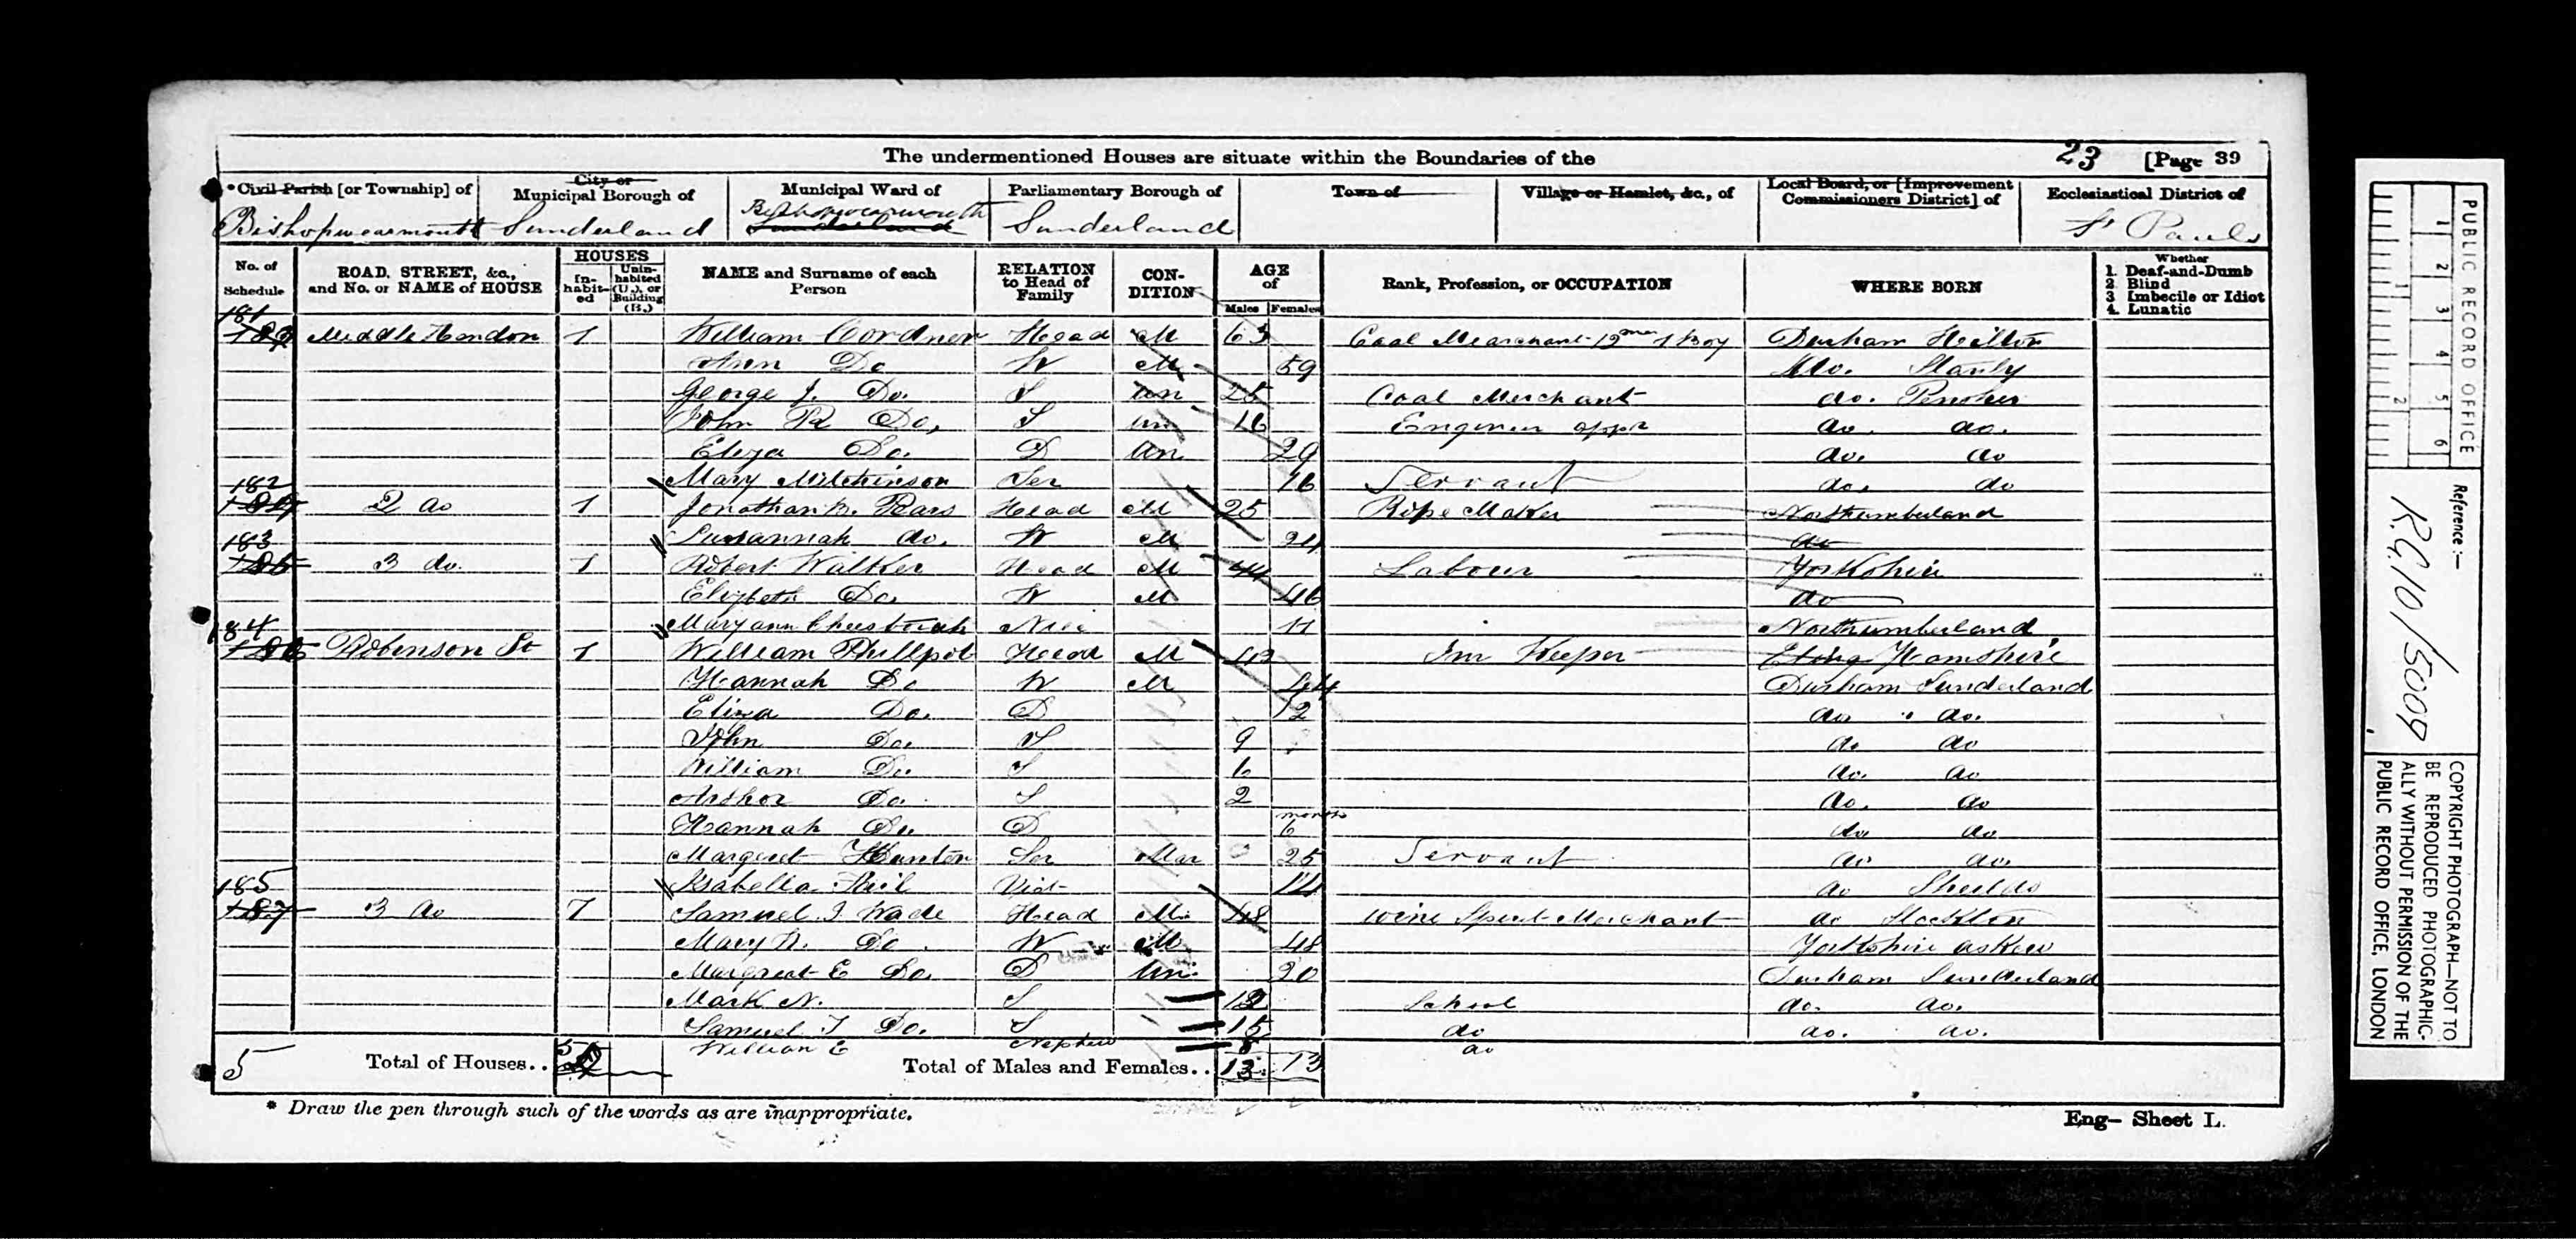 The undermentioned Houses are situate within the Boundaries of the 23 [Page 39
*Civil Parish [or Township] of City or Municipal Borough of Municipal Ward of Parliamentary Borough of Town of Village or Hamlet, &c., of Local Board, or [Improvement Commissioners District] of Ecclesiastical District of
Bishopwearmouth Sunderland Bishopwearmouth Sunderland Sunderland St Pauls
No. of Schedule ROAD, STREET, &c., and No. or NAME of HOUSE HOUSES Inhabited Uninhabited (U.), or Building (B.) NAME and Surname of each Person RELATION to Head of Family CONDITION AGE of Males Females Rank, Profession, or OCCUPATION WHERE BORN Whether 1. Deaf-and-Dumb 2. Blind 3. Imbecile or Idiot 4. Lunatic
181 Middle Hendon 1 William Cordner Head M 63 Coal Mearchant 12 men 1 Boy Durham
Ann Do W M 59 Do. Stanly
George J. Do. S un 25 Coal Merchant do. Pensher
John R Do, S un 16 Engineer appr do. do.
Eliza Do. D un 29 do. do
Mary Mitchinson Ser 16 Servant do. do
182 2 do 1 Jonathan B. Head M 25 Rope Maker Northumberland
Sussannah do. W M 24 do
183 185 3 do. 1 Robert Walker Head M 44 Labour Yorkshire
Elizbeth Do. W M 46 do
Maryann Nice 11 Northumberland
184 186 Robinson St 1 William Phillpot Head M 43 Inn Keeper Hamshire
Hannah Do W M 44 Durham Sunderland
Eliza Do. D 12 do. do.
John Do. S 9 do do
William Do. S 6 do. do
Arthor Do. S 2 do. do
Hannah Do. D months 6 do do
Margret Hunter Ser Mar 25 Servant do do.
Isabella Visit 14 do Sheilds
185 187 3 do 1 Samuel T Wade Head M. 48 Wine Spirit Merchant do Stockton
Mary N. Do. W M 48 Yorkshire askew
Margreat E Do. D Un. 20 Durham Sunderland
Mark N. S 12 School do. do.
Samuel T Do. S 15 do do. do.
William E Nephew 8 do
5 Total of Houses.. 5 Total of Males and Females.. 13 13
* Draw the pen through such of the words as are inappropriate.
Eng- Sheet L.
PUBLIC RECORD OFFICE
1 2 3 4 5 6
1 2
Reference :-
R.G. 10/5009
COPYRIGHT PHOTOGRAPH-NOT TO
BE REPRODUCED PHOTOGRAPHIC-
ALLY WITHOUT PERMISSION OF THE
PUBLIC RECORD OFFICE, LONDON